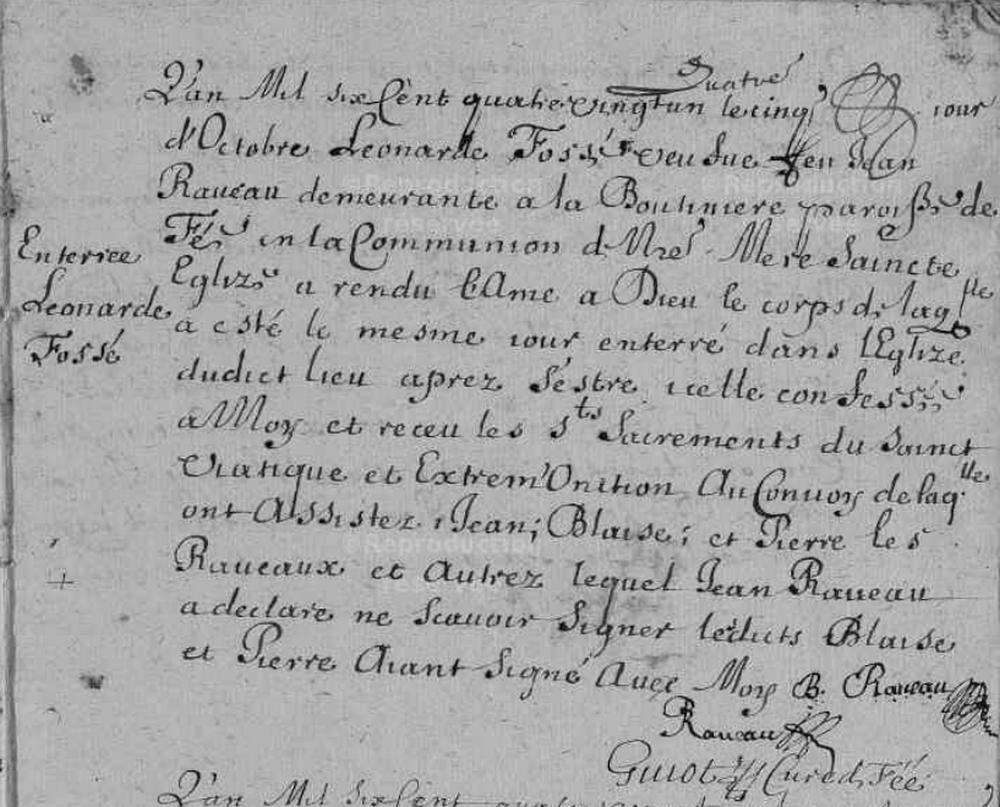 Quatre
L'an Mil six Cent quatre vingt un le cinq iour
d'Octobre Leonarde Fossé veufue feu Jean
Raueau demeurante a la Boutiniere paroisse de
Feé en la Communion d Nre Mere Saincte
Eglize a rendu l'Ame a Dieu le corps d laqlle
Enterree
Leonarde
Fossé
a esté le mesme iour enterré dans l'Eglize
dudict lieu aprez s'estre icelle confessée
a Moy et receu les Sts Sacrements du Sainct
Viatique et Extrem'Onction Au Conuoy de laqlle
ont Assistez Jean; Blaise; et Pierre les
Raueaux et Autrez lequel Jean Raueau
a declare ne scauoir signer lesdicts Blaise
et Pierre Aiant Signé Auec Moy B. Raueau
Raueau
Guiot Curé d Feé
L'an Mil six Cent